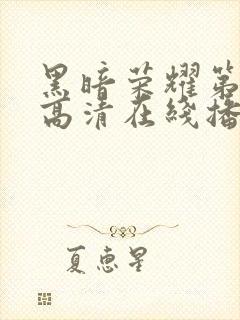 黑暗荣耀第
高清在线播
夏惠星